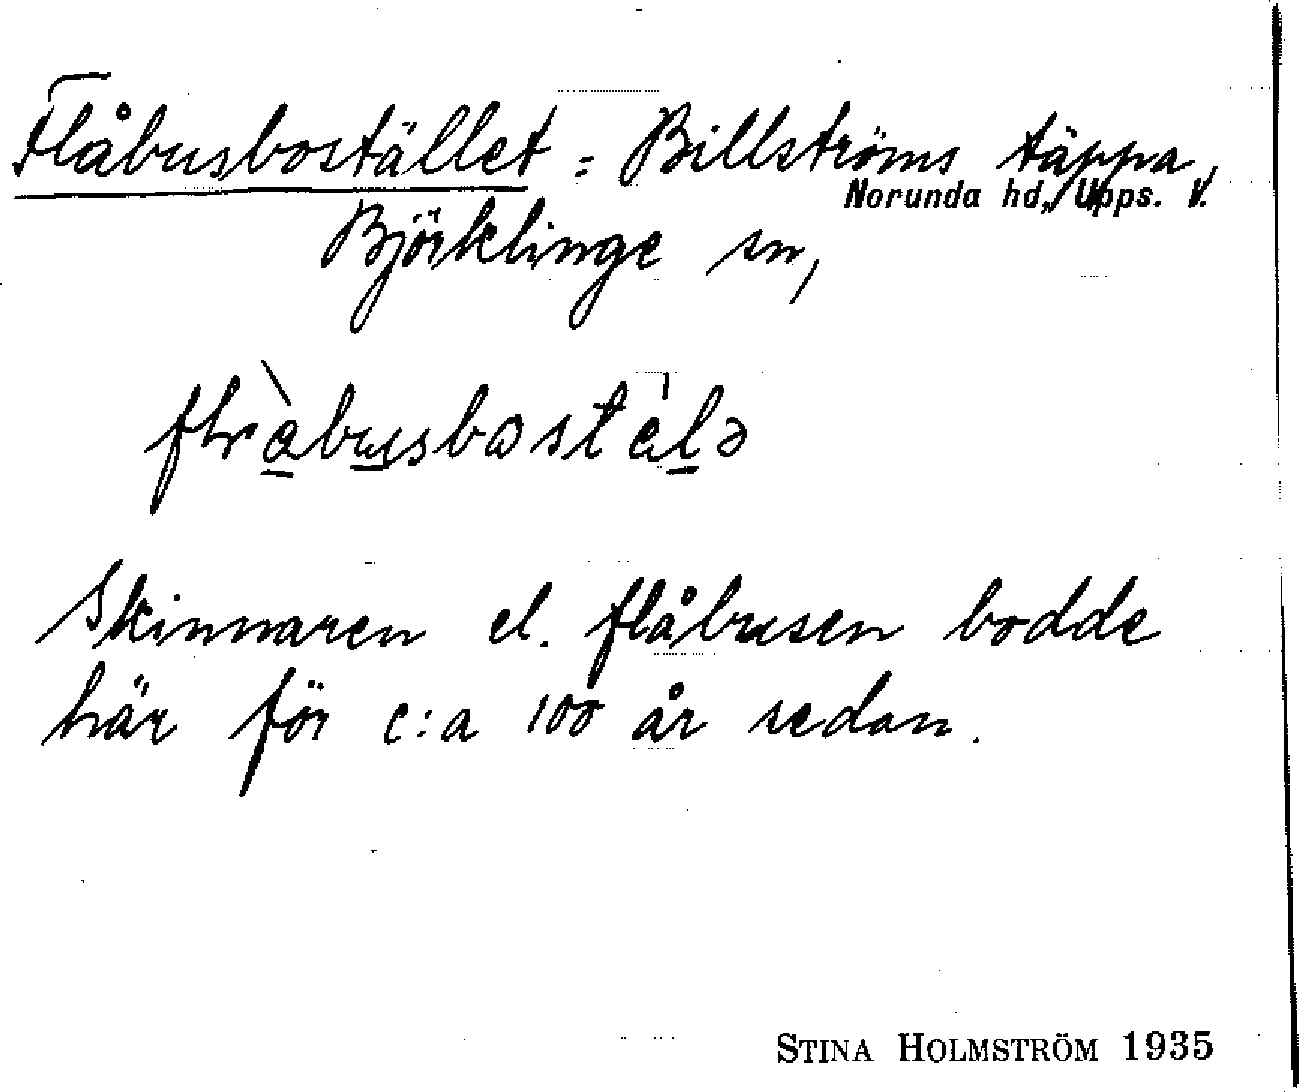 Flåbusbostället = Billströms täppa,
Norunda hd, Upps. l.
Björklinge sn,
Skinnaren el. flåbusen bodde
här för c:a 100 år sedan.
STINA HOLMSTRÖM 1935